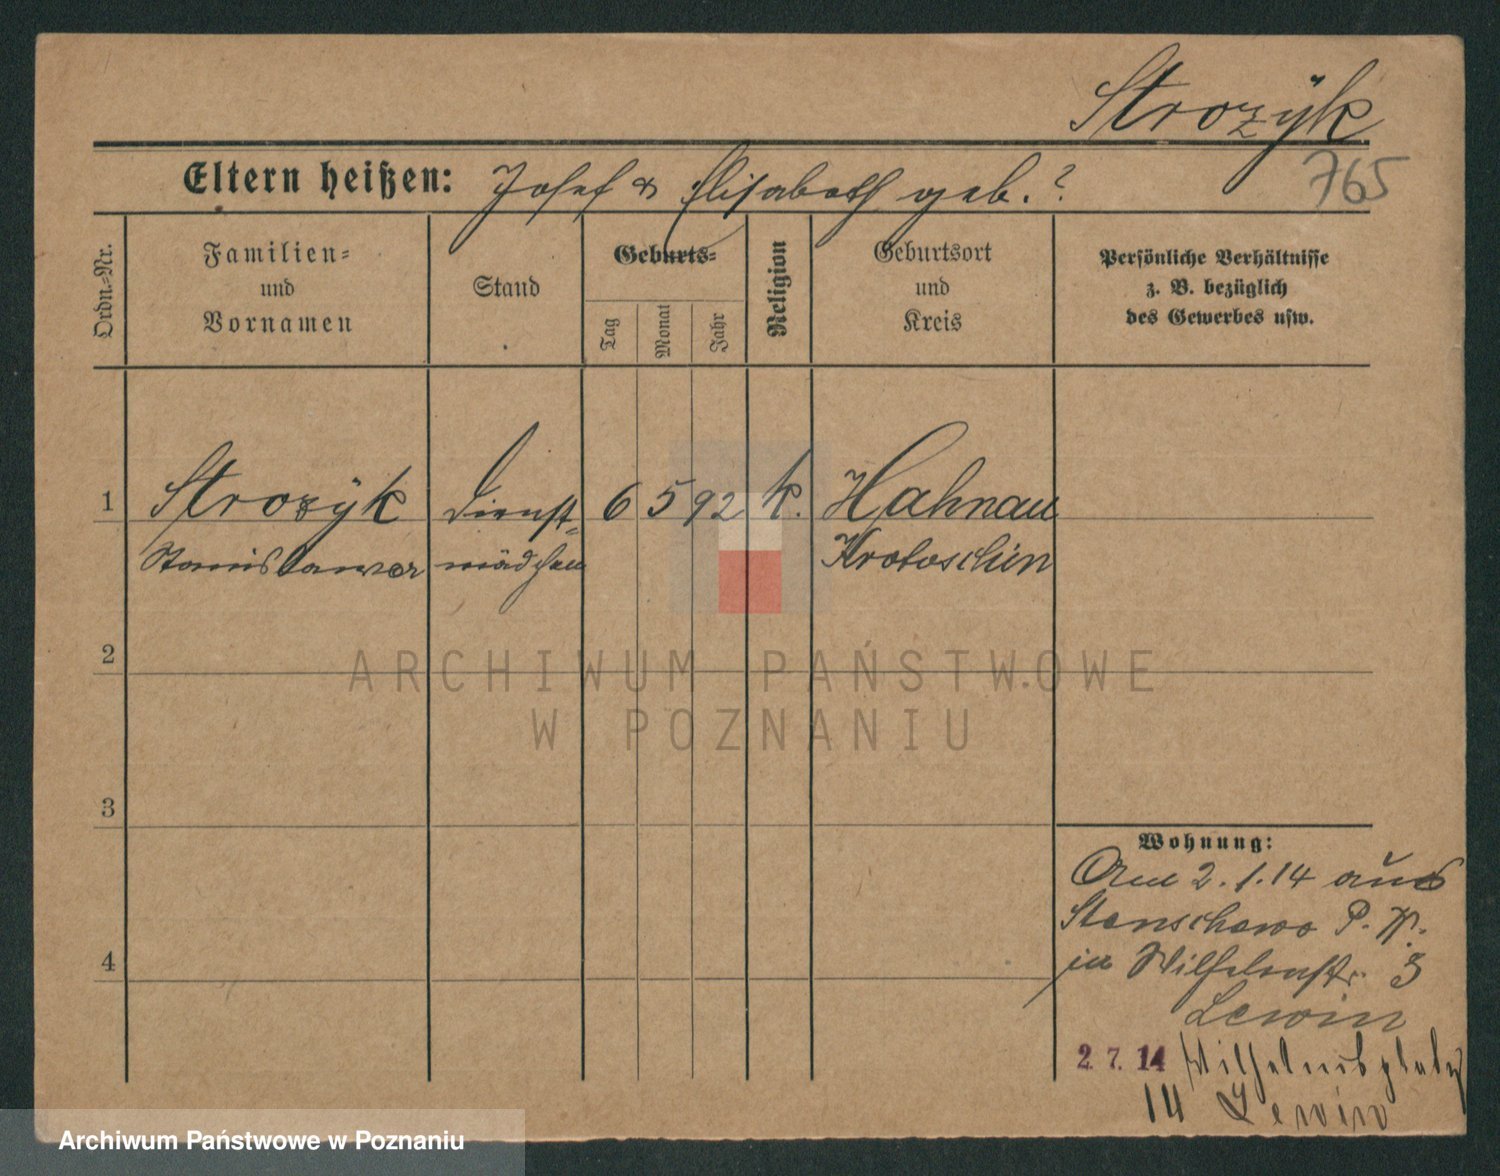 Strozÿk
765
Eltern heißen: Josef & Elisabeth geb. ?
Ordn.-Nr.
Familien-
und
Vornamen
Stand
Geburts-
Tag
Monat
Jahr
Religion
Geburtsort
und
Kreis
Persönliche Verhältnisse
z. B. bezüglich
des Gewerbes usw.
1 Strozÿk Dienst- 6 5 92 k. Hahnau
Stanislawa mädchen Krotoschin
2
3
4
ARCHIWUM PAŃSTWOWE
W POZNANIU
Wohnung:
Am 2.1.14 aus
Stenschewo P. W.
in Wilhelmstr. 3
Lewin
2. 7. 14 Wilhelmsplatz
14 Lewin
Archiwum Państwowe w Poznaniu